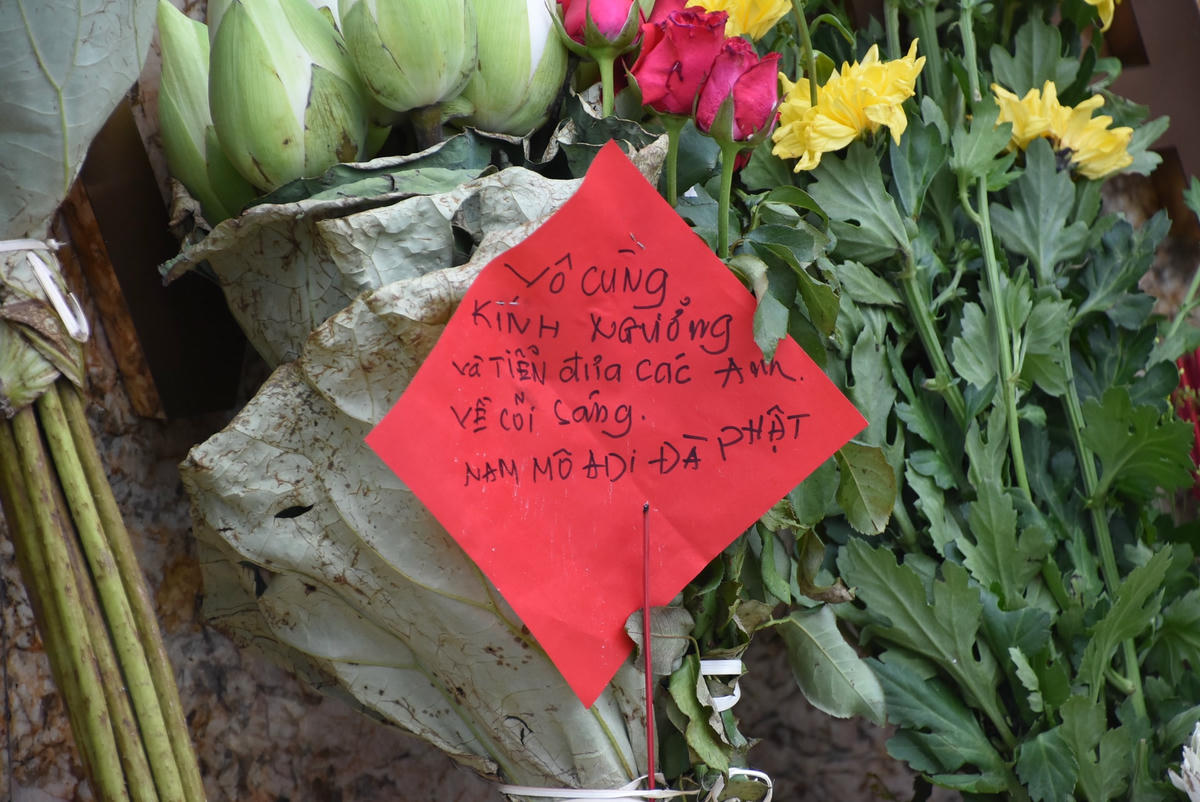 VÔ CÙNG
KÍNH NGƯỞNG
và TIỄN đưa các Anh.
VỀ CÕI Sáng.
NAM MÔ ADI ĐÀ PHẬT